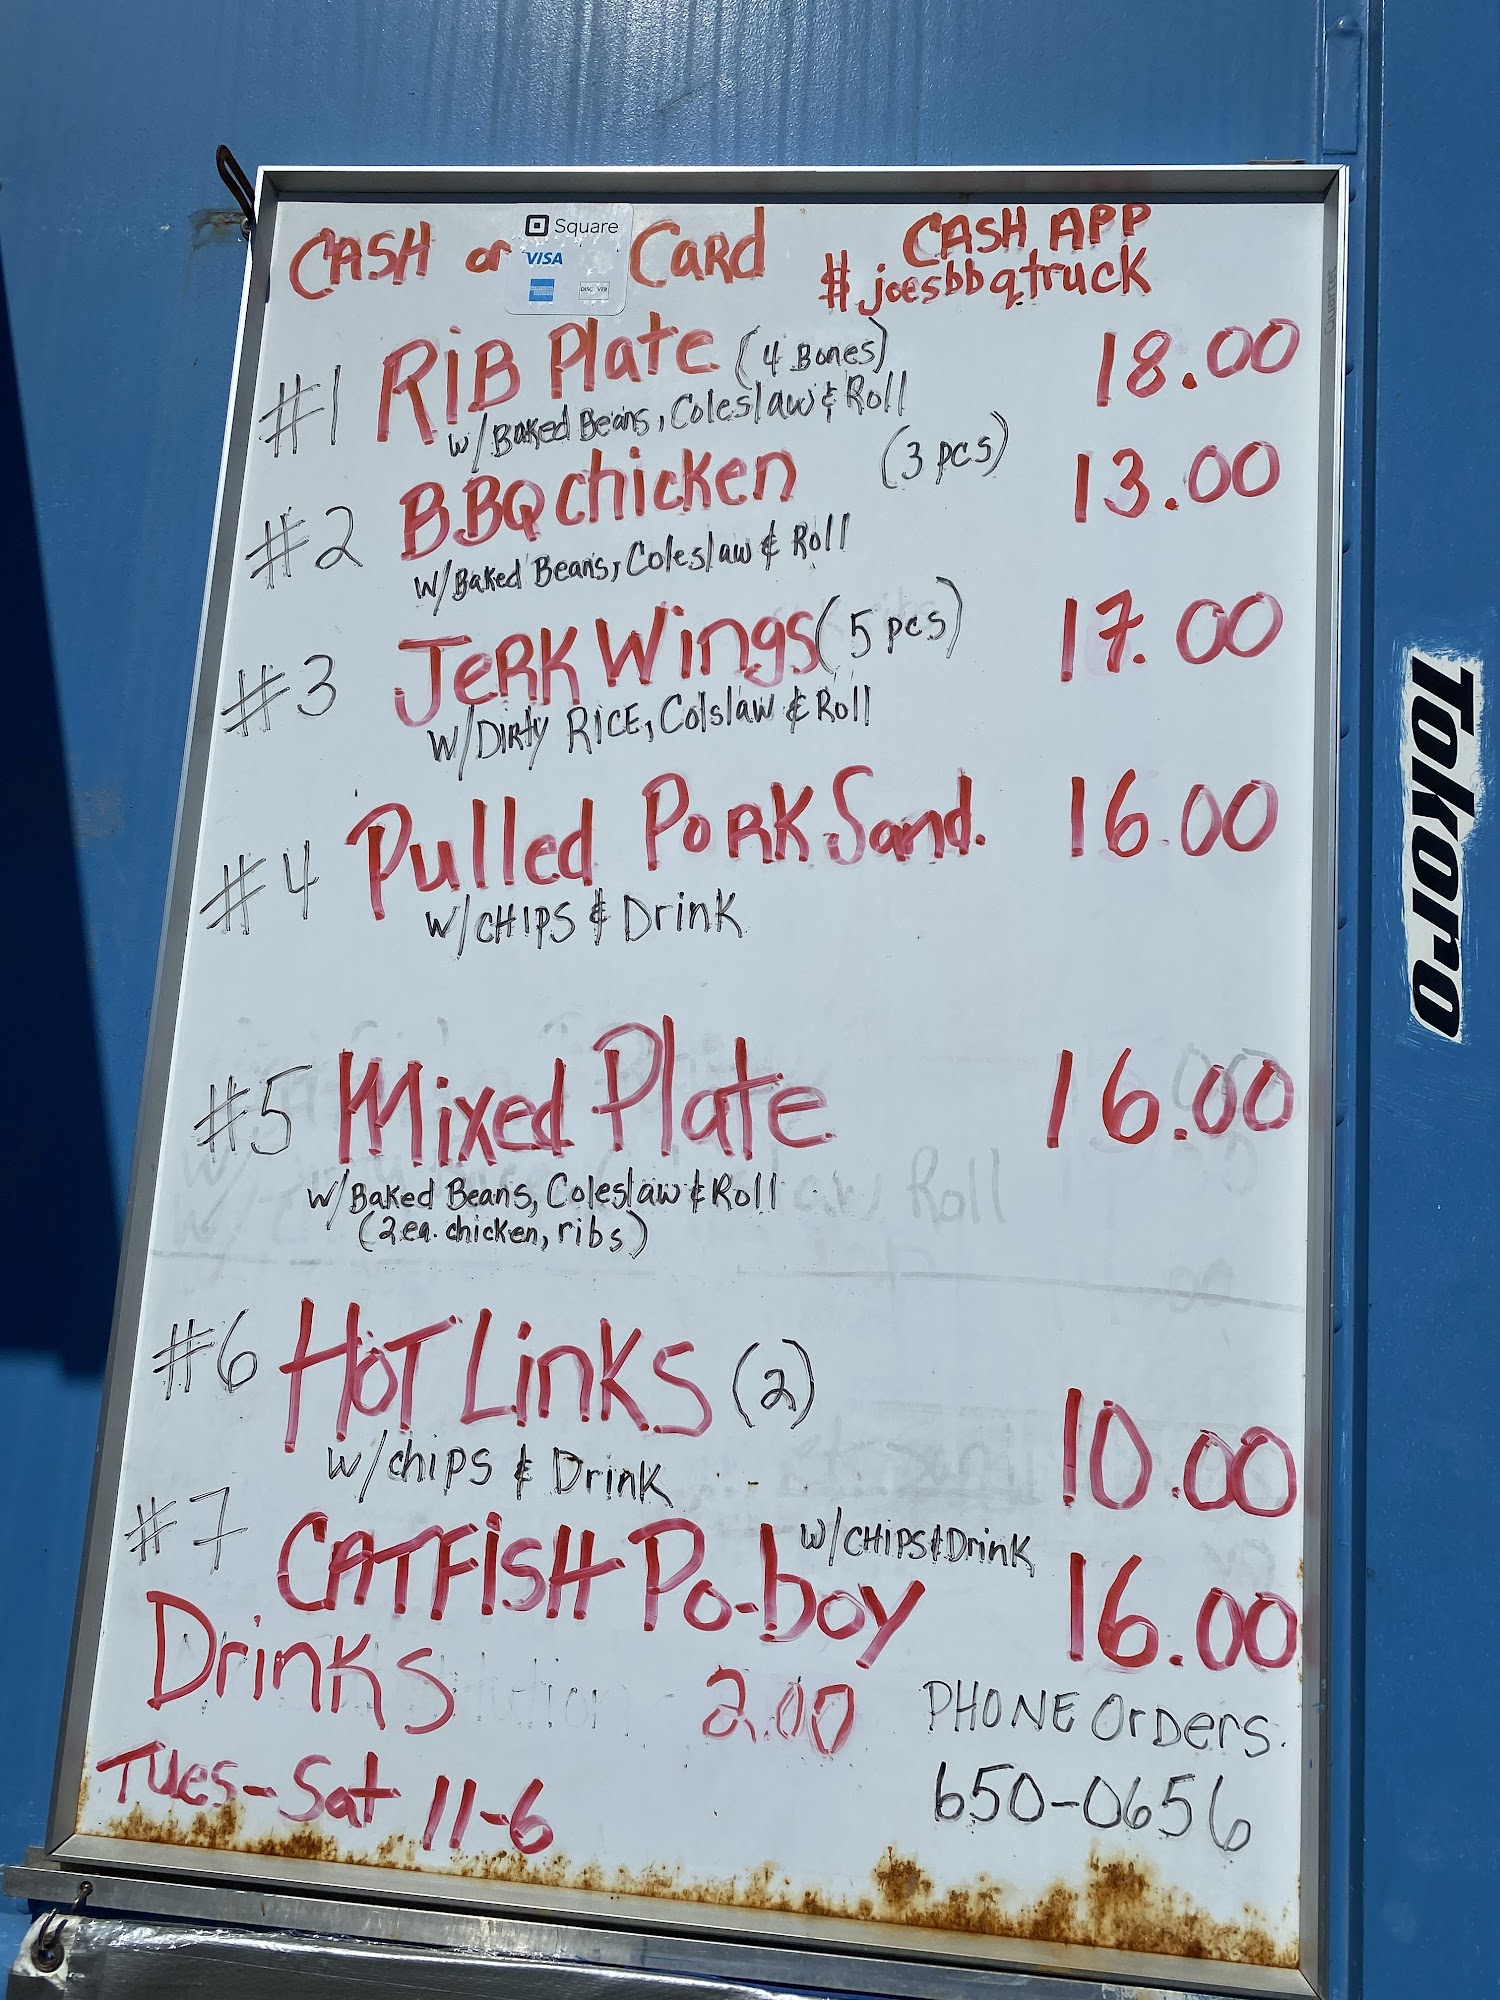 CASH or Square Card
VISA
DISCOVER
CASH APP
$joesbbqtruck
#1 RiB Plate (4 Bones) 18.00
w/Baked Beans, Coleslaw & Roll
#2 BBQ chicken (3 pcs) 13.00
w/Baked Beans, Coleslaw & Roll
#3 JERK Wings (5 pcs) 17.00
w/Dirty RICE, Colslaw & Roll
#4 Pulled PORK Sand. 16.00
w/CHIPS & Drink
#5 Mixed Plate 16.00
w/Baked Beans, Coleslaw & Roll
(2 ea. chicken, ribs)
#6 HOT Links (2) 10.00
w/chips & Drink
#7 CATFISH Po-boy w/CHIPS & Drink 16.00
Drinks 2.00
PHONE Orders
Tues-Sat 11-6
650-0656
Tokoro
Quartet